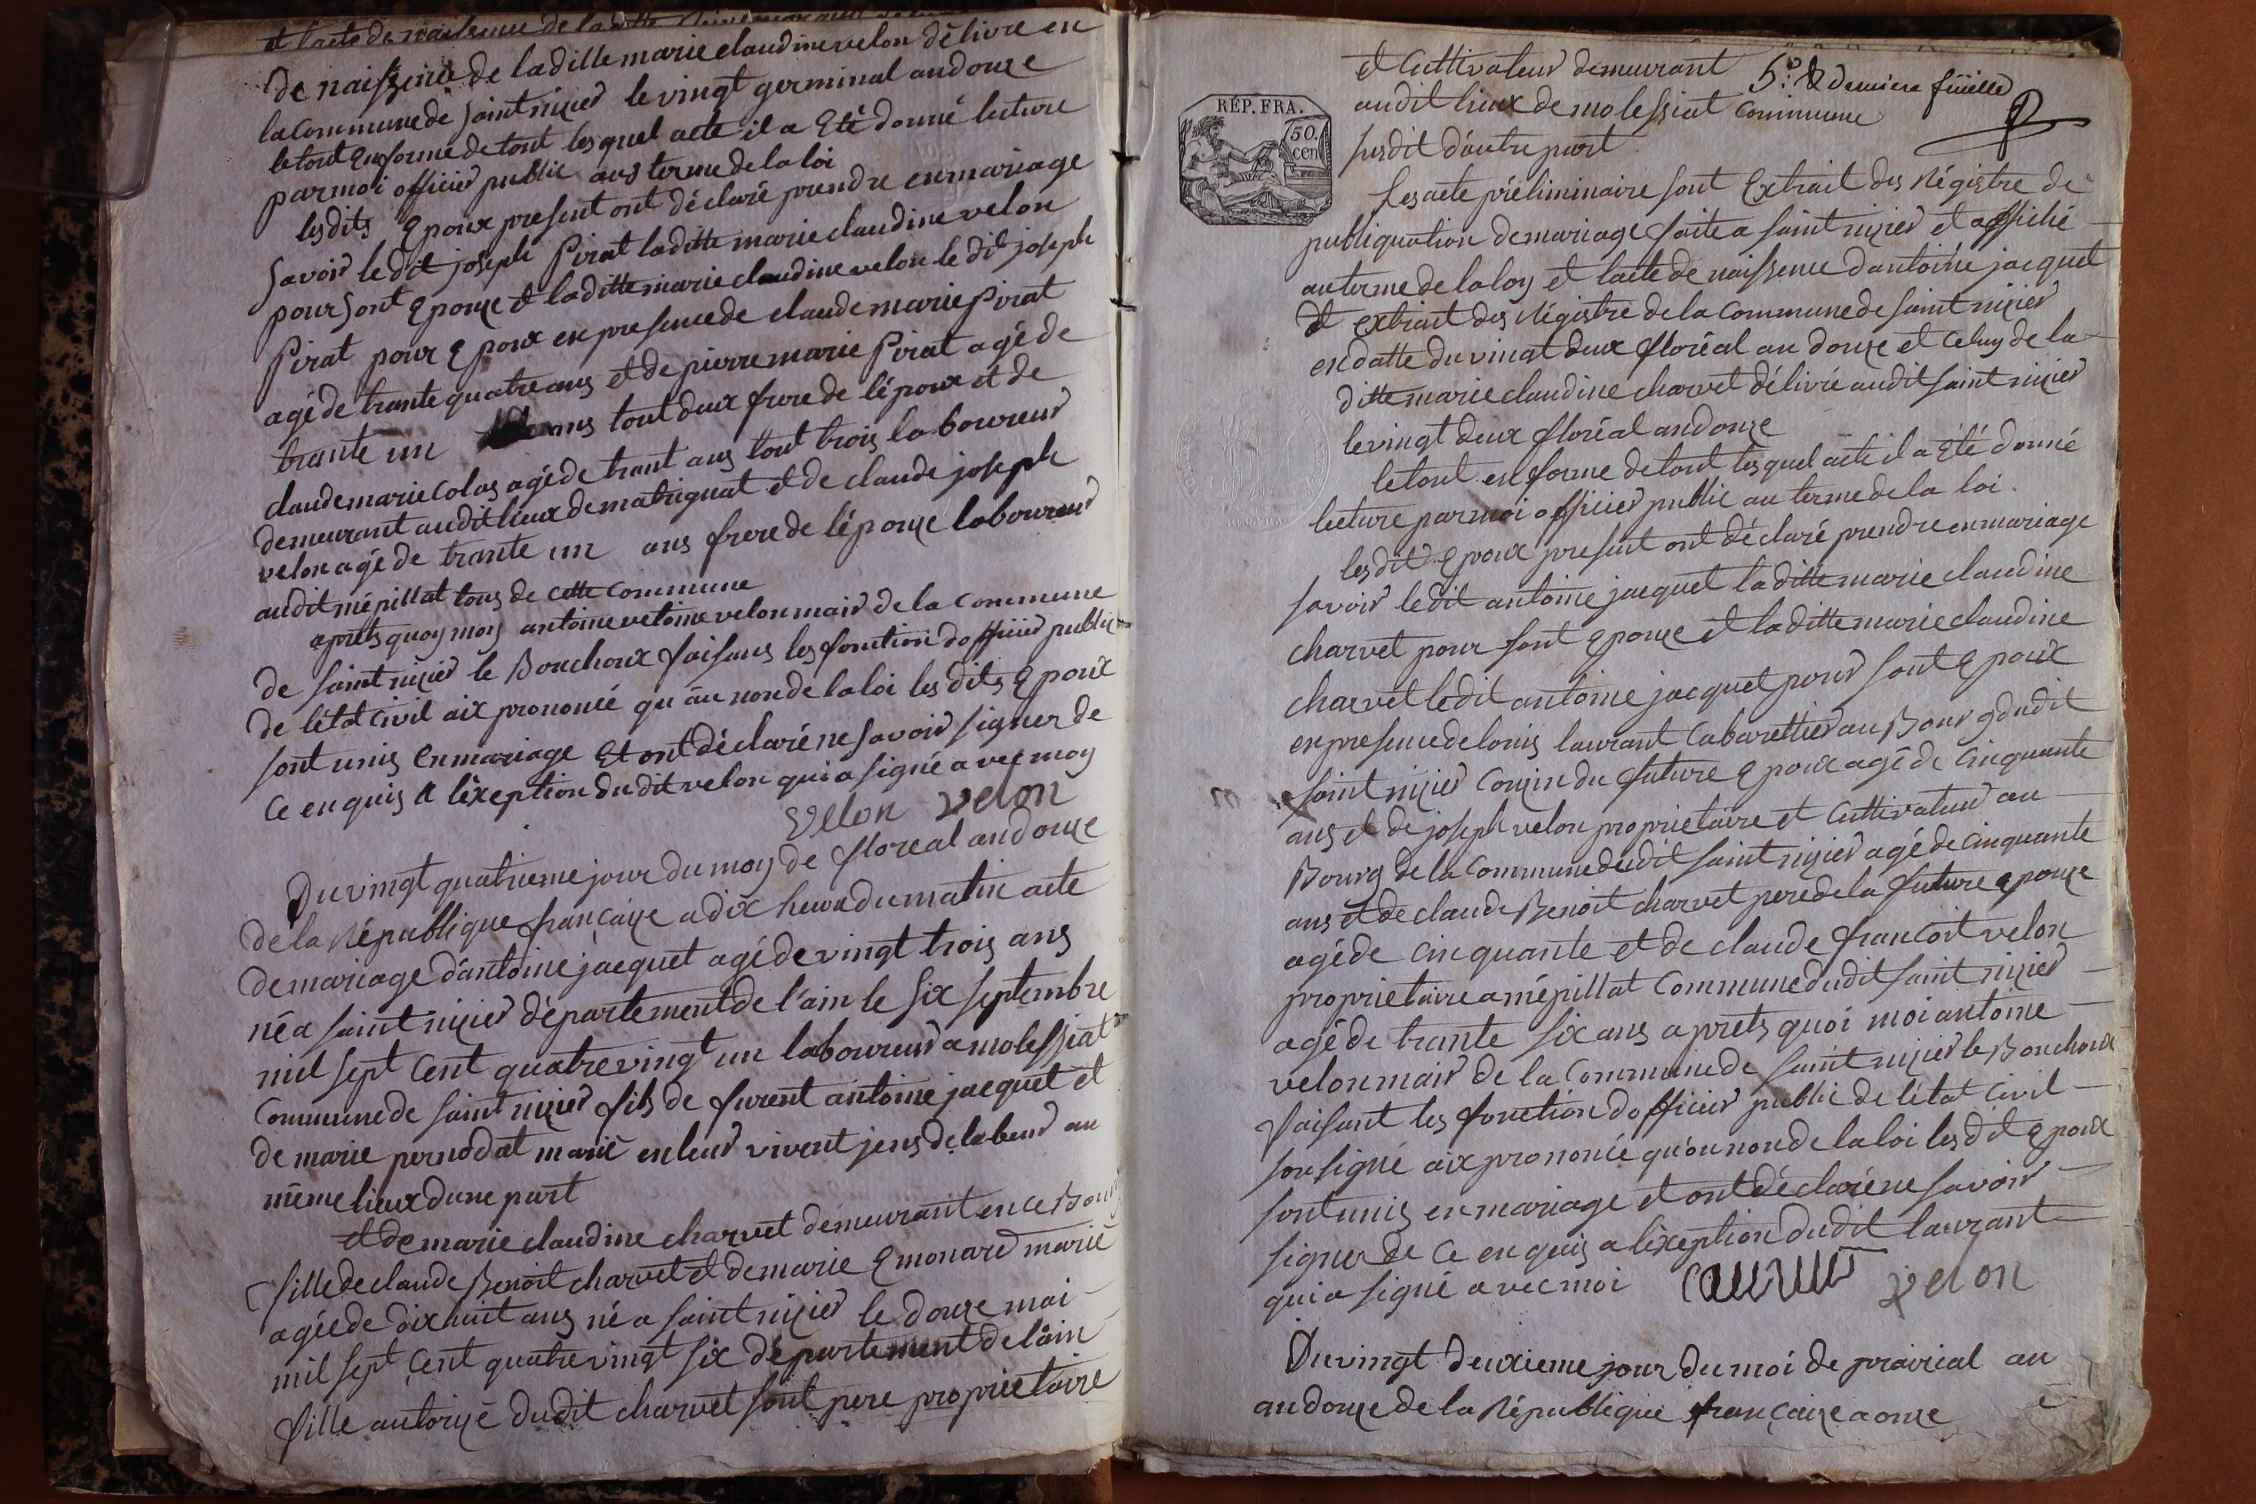 et l'acte de naissence de la ditte
de naissence de la ditte marie claudine velon délivré en
la commune de saint nizier le vingt germinal an douze
le tout en forme de tout les quel acte il a Eté donné lecture
par moi officier public aus terme de la loi
les dits Epoux present ont déclaré prendre en mariage
savoir le dit joseph Pirat la ditte marie claudine velon
pour sont Epouze et la ditte marie claudine velon le dit joseph
Pirat pour Epoux en presence de claude marie Pirat
agé de trante quatre ans et de pierre marie Pirat agé de
trante un ans tout deux frere de lépoux et de
claude marie Colas agé de trant ans tout trois laboureur
demeurant audit lieux de matrignat et de claude joseph
velon agé de trante un ans frere de lépouze laboureur
audit mépillat tous de cette commune
aprets quoy moy antoine velon mair de la commune
de saint nizier le Bouchoux faisans les fonction dofficier public
de létat civil aix prononcé qu au non de la loi les dits Epoux
sont unis en mariage et ont déclaré ne savoir signer de
ce enquis a léxeption du dit velon qui a signé avec moy
velon velon
Du vingt quatrieme jour du moy de floreal an douze
de la République française a dix heure du matin acte
de mariage dantoine jacquet agé de vingt trois ans
né a saint nizier département de l'ain le six septembre
mil sept cent quatre vingt un laboureur a molessiat
commune de saint nizier fils de furent antoine jacquet et
de marie pernodat marié en leur vivent jens de labeur au
même lieux dune part
et de marie claudine charvet demeurant en ce Bourg
fille de claude Benoit charvet et de marie Emonard marié
agée de dix huit ans né a saint nizier le douze mai
mil sept cent quatre vingt six département de lain
fille autorizé dudit charvet sont pere proprietaire
5.e & derniere feuille
RÉP. FRA.
50.
cen
et Cultivateur demeurant
audit lieux de molessiat commune
susdit d'autre part
les acte préliminaire sont Extrait des Régistre de
publiquation de mariage faite a saint nizier et affiché
au terme de la loy et lacte de naissence dantoine jacquet
et extrait des Régistre de la commune de saint nizier
en datte du vingt deux floréal an douze et celuy de la
ditte marie claudine charvet délivré audit saint nizier
le vingt deux floréal an douze
le tout en forme de tout les quel acte il a été donné
lecture par moi officier public au terme de la loi.
les dit Epoux present ont déclaré prendre en mariage
savoir le dit antoine jacquet la ditte marie claudine
charvet pour sont Epouze et la ditte marie claudine
charvet le dit antoine jacquet pour sont Epoux
en presence de louis laurant Cabarettier au Bourg dudit
saint nizier Couzin du future Epoux agé de Cinquante
ans et de joseph velon proprietaire et Cultivateur au
Bourg de la commune dudit saint nizier agé de cinquante
ans et de claude Benoit charvet pere de la future Epouze
agé de cinquante et de claude francoit velon
proprietaire a mépillat commune dudit saint nizier
agé de trante six ans aprets quoi moi antoine
velon mair de la commune de saint nizier le Bouchoux
faisant les fonction dofficier public de létat civil
sousigné aix prononcé qu'au non de la loi les dit Epoux
sont unis en mariage et ont déclaré ne savoir
signer de ce enquis a léxeption dudit laurant
qui a signé avec moi laurant velon
Du vingt deuxieme jour du moi de prairial au
an douze de la République française a onze